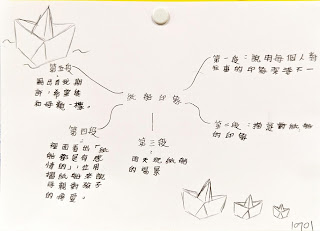 紙船印象
第一段：說明每個人對
往事的印象深淺不一
第二段：描述對紙船
的印象
第三段
雨天玩紙船
的場景
第四段
裡面看出「紙
船都是有感
情的」，也用
摺紙船來說
母親對孩子
的希望。
第五段
和母親一樣。
10701